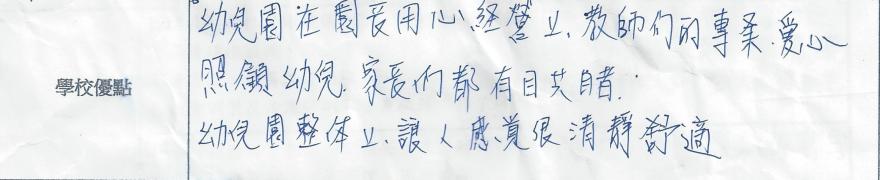 幼兒園在園長用心經營上、教師們的專業、愛心
學校優點
照顧幼兒、家長們都有目共睹.
幼兒園整体上、讓人感覺很清靜舒適